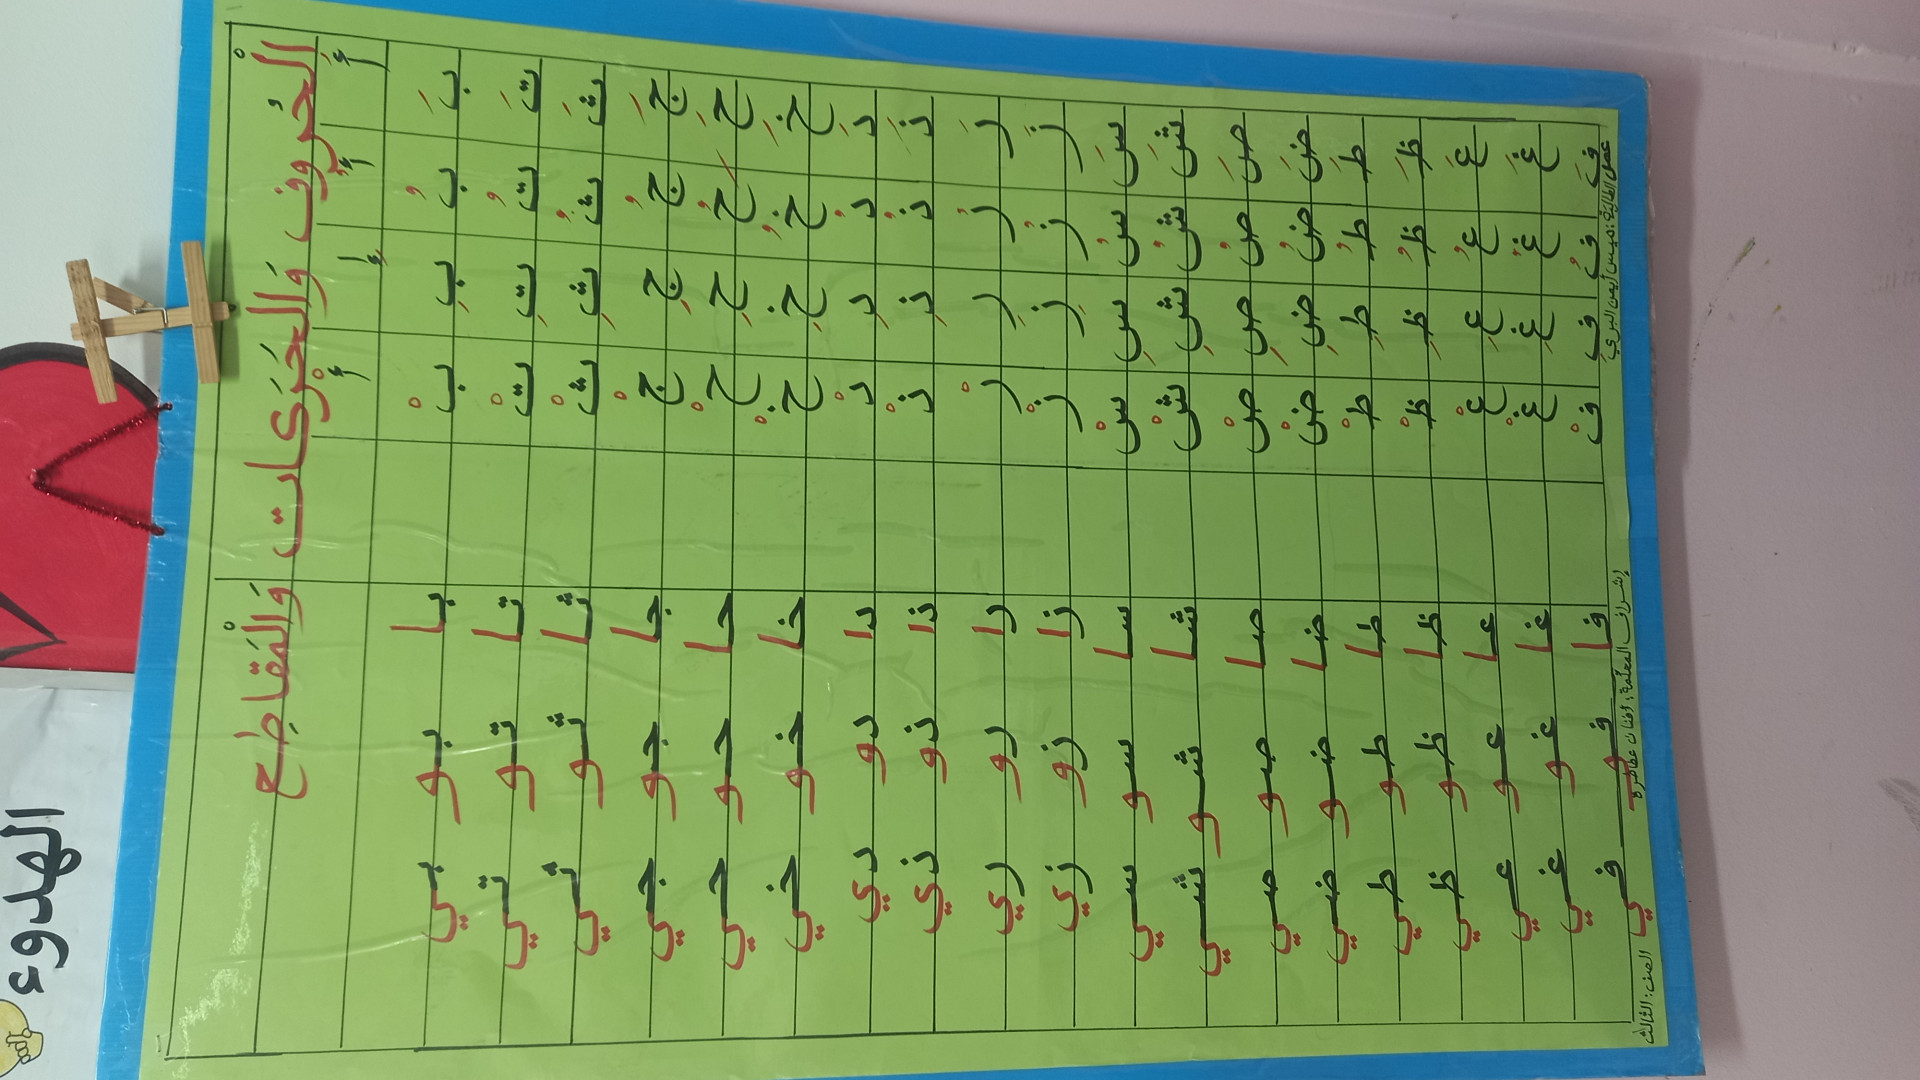 الْحُروف وَالْحَرَكات وَالْمَقاطِع
أَ أُ إِ أْ
بَ بُ بِ بْ با بو بي
تَ تُ تِ تْ تا تو تي
ثَ ثُ ثِ ثْ ثا ثو ثي
جَ جُ جِ جْ جا جو جي
حَ حُ حِ حْ حا حو حي
خَ خُ خِ خْ خا خو خي
دَ دُ دِ دْ دا دو دي
ذَ ذُ ذِ ذْ ذا ذو ذي
رَ رُ رِ رْ را رو ري
زَ زُ زِ زْ زا زو زي
سَ سُ سِ سْ سا سو سي
شَ شُ شِ شْ شا شو شي
صَ صُ صِ صْ صا صو صي
ضَ ضُ ضِ ضْ ضا ضو ضي
طَ طُ طِ طْ طا طو طي
ظَ ظُ ظِ ظْ ظا ظو ظي
عَ عُ عِ عْ عا عو عي
غَ غُ غِ غْ غا غو غي
فَ فُ فِ فْ فا فو في
عمل الطالبة: ميس أيمن إشراف المعلّمة: افنان عطاطرة الصف: الثالث
الهدوء